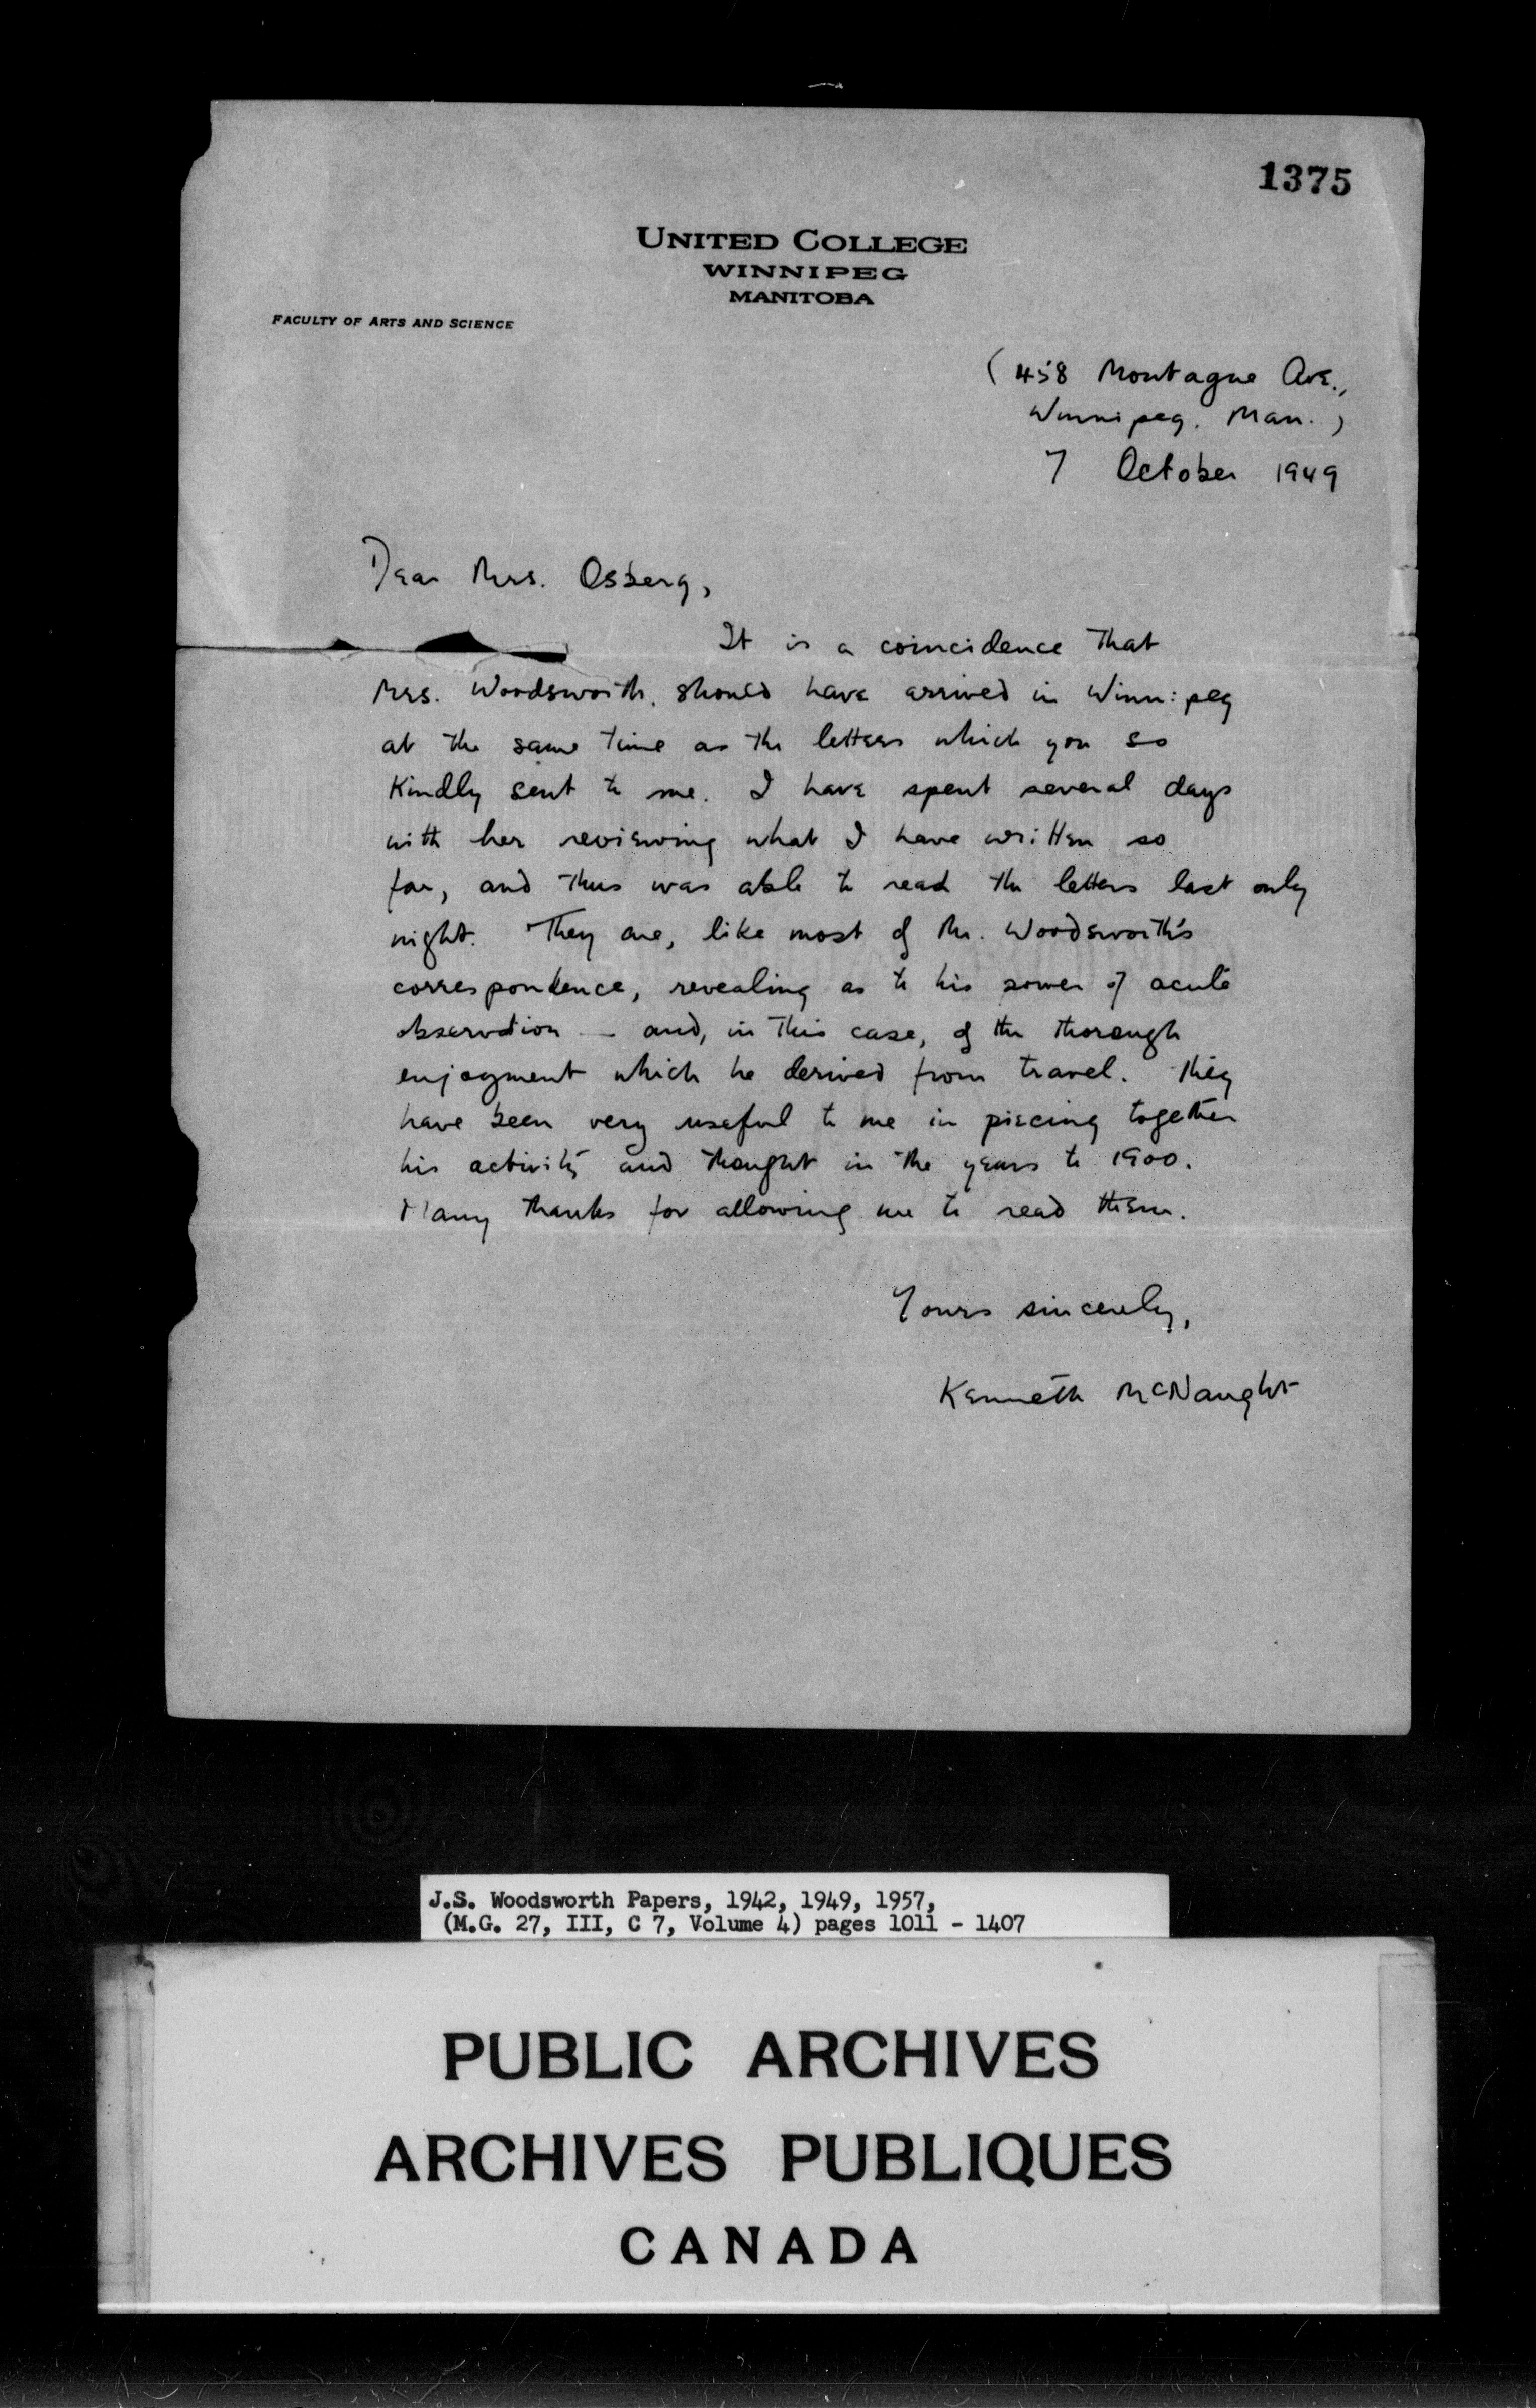 1375
UNITED COLLEGE
WINNIPEG
MANITOBA
FACULTY OF ARTS AND SCIENCE
(458 Montague Ave.,
Winnipeg, Man.)
7 October 1949
Dear Mrs. Osberg,
It is a coincidence that
Mrs. Woodsworth, should have arrived in Winnipeg
at the same time as the letters which you so
kindly sent to me. I have spent several days
with her reviewing what I have written so
far, and thus was able to read the letters last only
night. They are, like most of Mr. Woodsworth's
correspondence, revealing as to his power of acute
observation — and, in this case, of the thorough
enjoyment which he derived from travel. They
have been very useful to me in piecing together
his activity and thought in the years to 1900.
Many thanks for allowing me to read them.
Yours sincerely,
Kenneth McNaught
J.S. Woodsworth Papers, 1942, 1949, 1957,
(M.G. 27, III, C 7, Volume 4) pages 1011 - 1407
PUBLIC ARCHIVES
ARCHIVES PUBLIQUES
CANADA